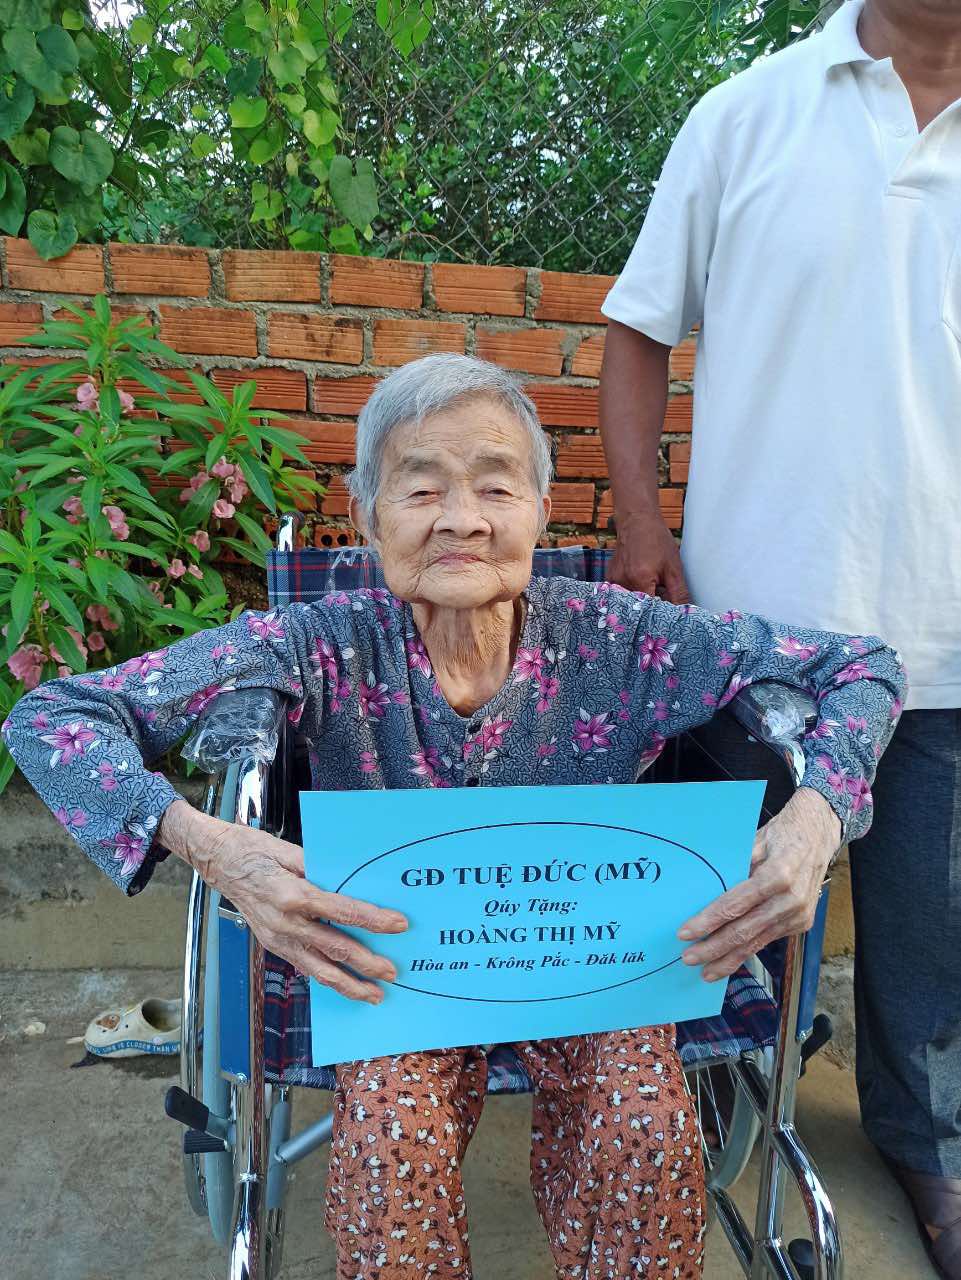 GĐ TUỆ ĐỨC (MỸ)
Qúy Tặng:
HOÀNG THỊ MỸ
Hòa an - Krông Pắc - Đăk lăk